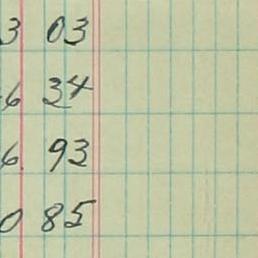 3 03
6 34
6. 93
0 85